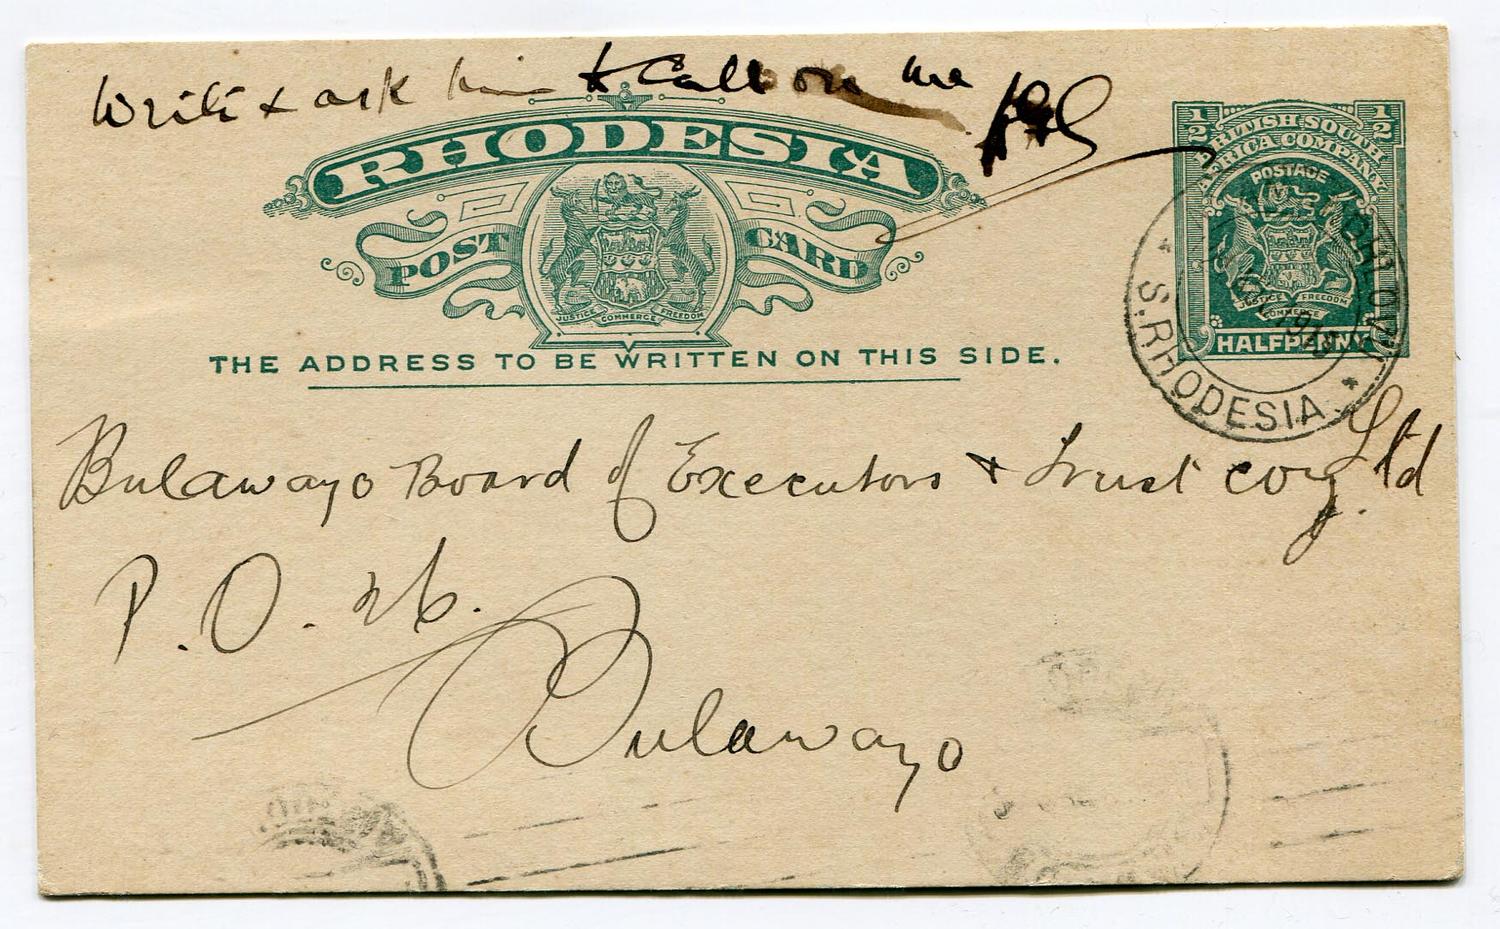 Write & ask him to Call on me
RHODESIA
POST CARD
JUSTICE COMMERCE FREEDOM
THE ADDRESS TO BE WRITTEN ON THIS SIDE.
1/2 1/2
BRITISH SOUTH
AFRICA COMPANY
POSTAGE
JUSTICE FREEDOM
COMMERCE
HALFPENNY
S.RHODESIA
Bulawayo Board of Executors & Trust Coy. Ltd
P.O. 26.
Bulawayo